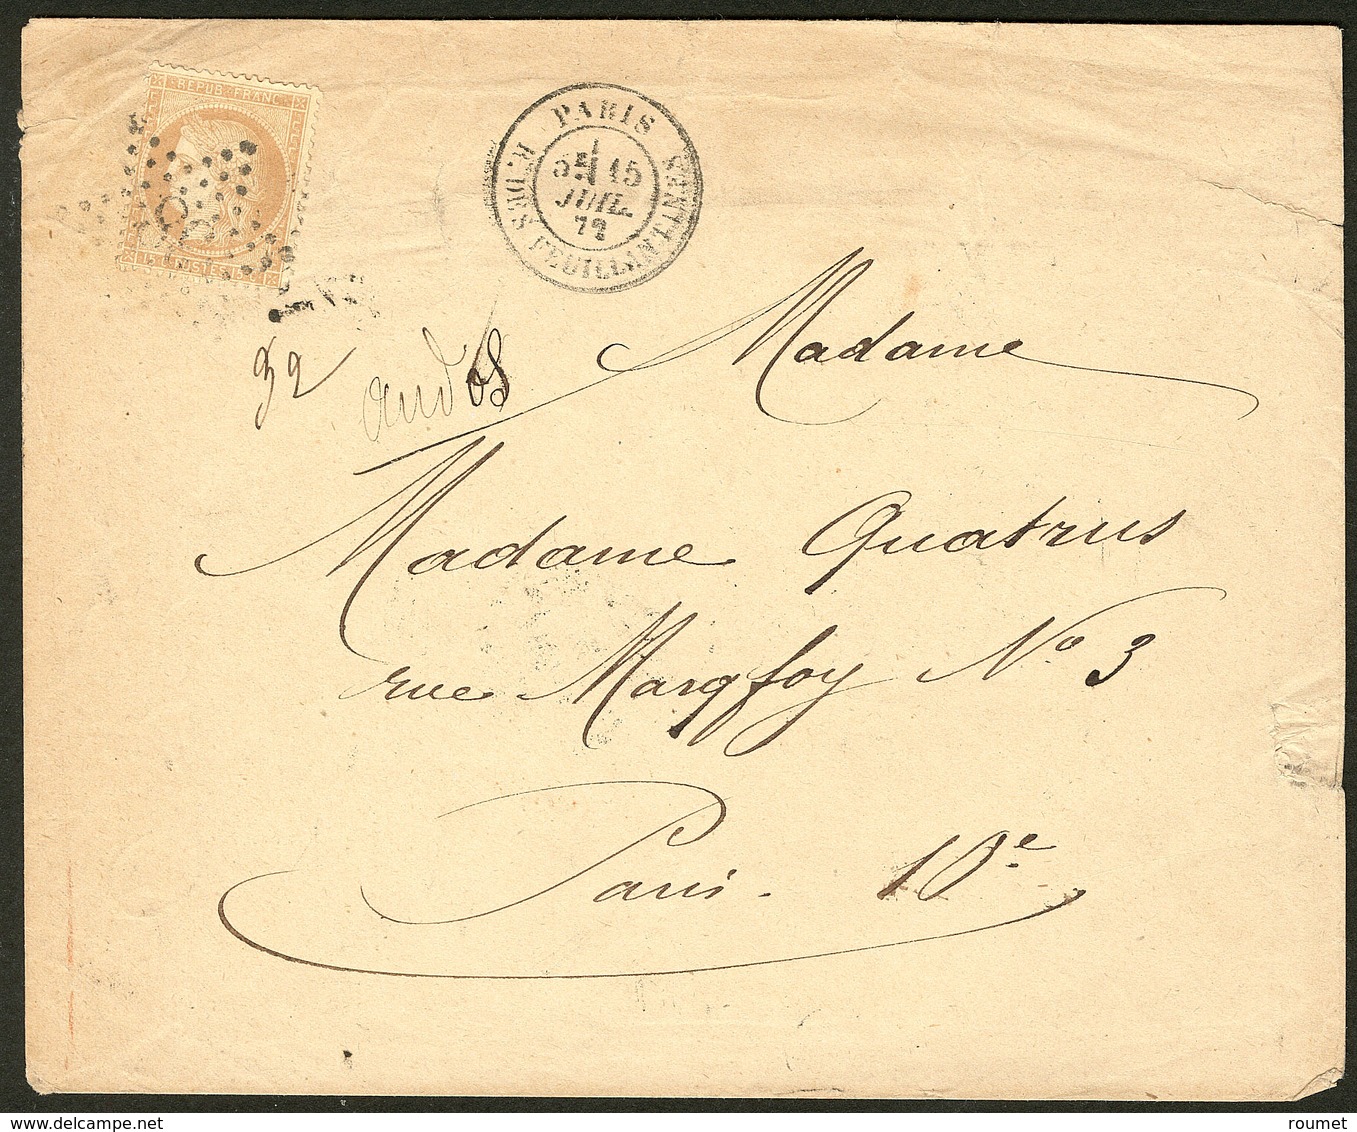 REPUB·FRANC
15 POSTES
PARIS
R. DES FEUILLANTINES
5E 15
JUIL.
72
32
Madame
Madame Quatrus
rue Marqfoy Nº 3
Paris. 10e
roumet